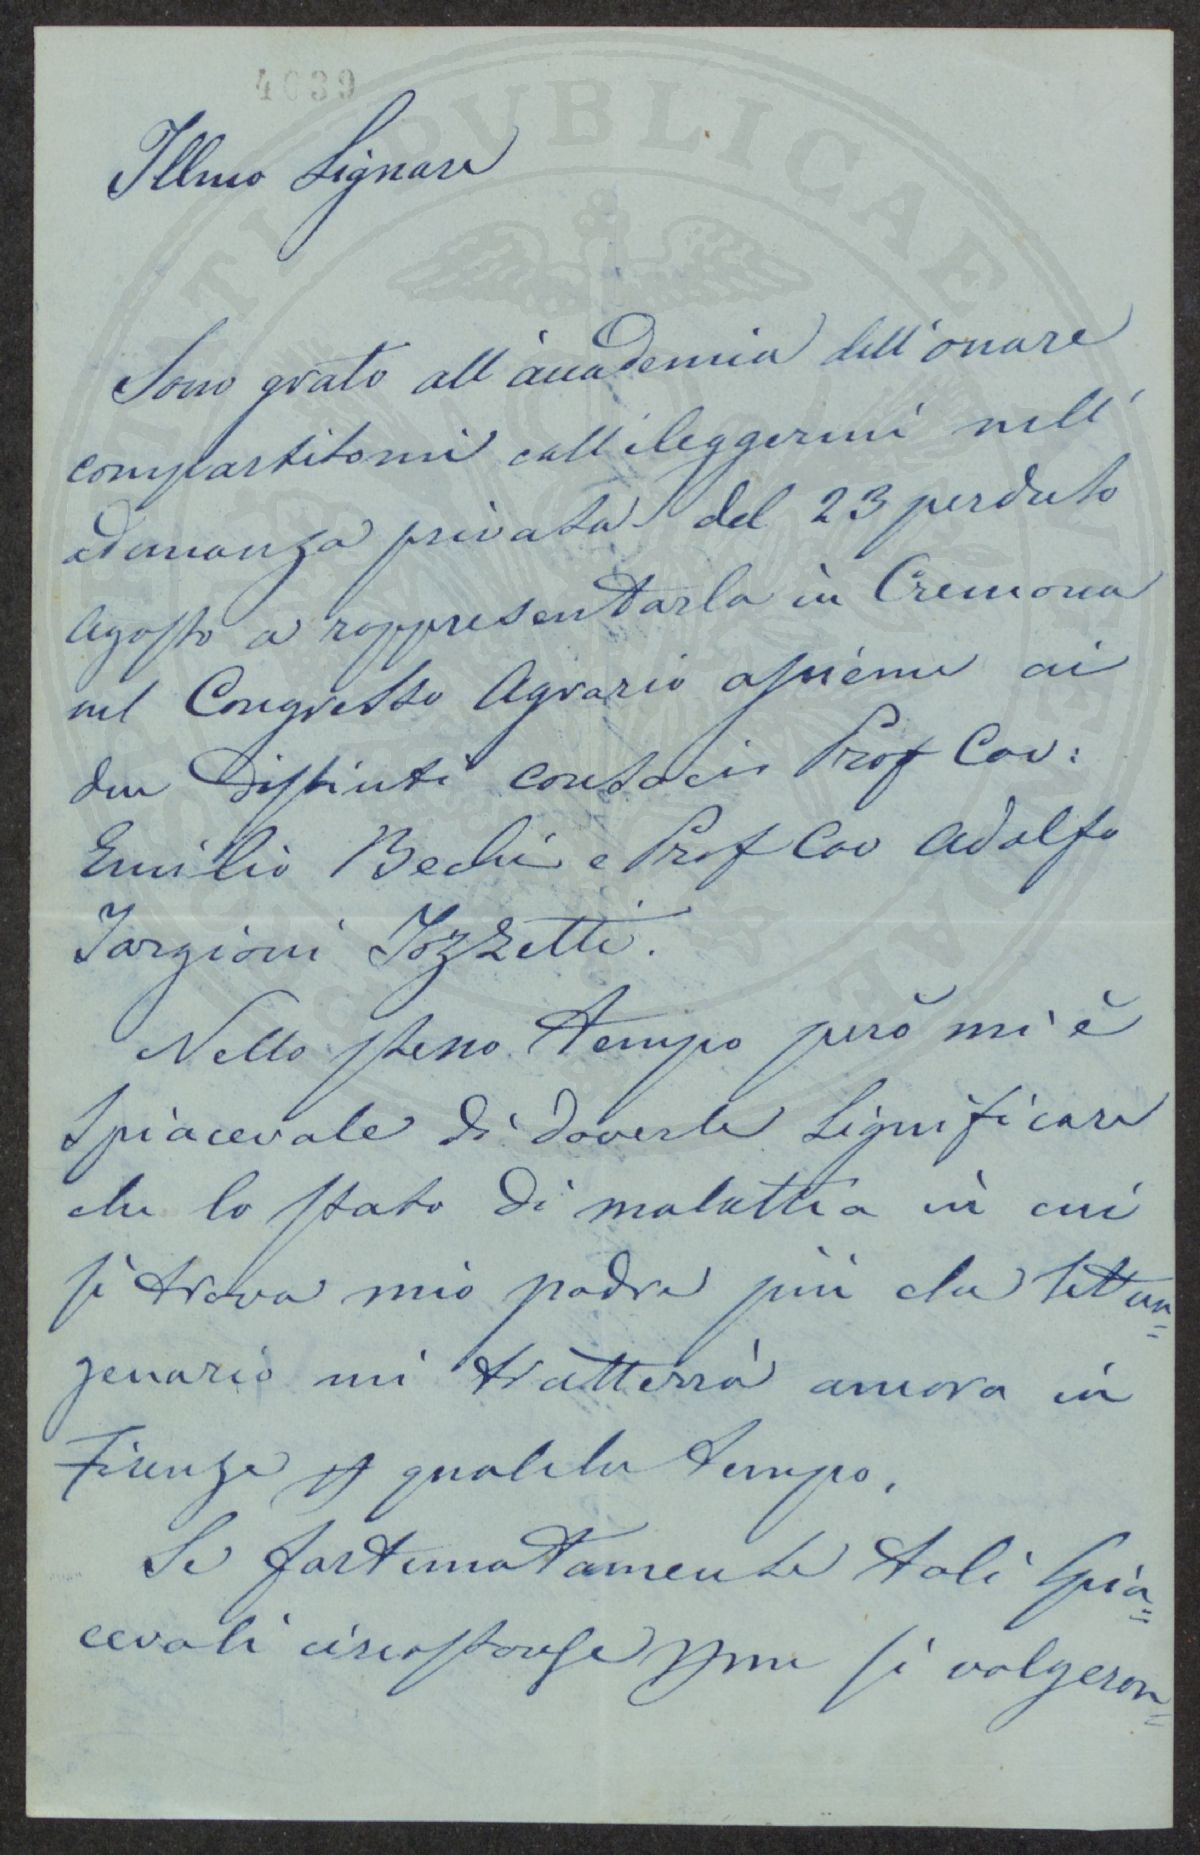 4039
Illmo Signore
Sono grato all'accademia dell'onore
compartitomi coll'eleggermi nell'
adunanza privata del 23 perduto
Agosto a rappresentarla in Cremona
nel Congresso Agrario assieme ai
due distinti consocii Prof Cav:
Emilio Bechi e Prof Cav Adolfo
Targioni Tozzetti.
Nello stesso tempo però mi è
spiacevole di doverle significare
che lo stato di malattia in cui
si trova mio padre più che settua=
genario mi tratterrà ancora in
Firenze qualche tempo.
Se fortunatamente tali spia=
cevoli circostanze si volgeran=